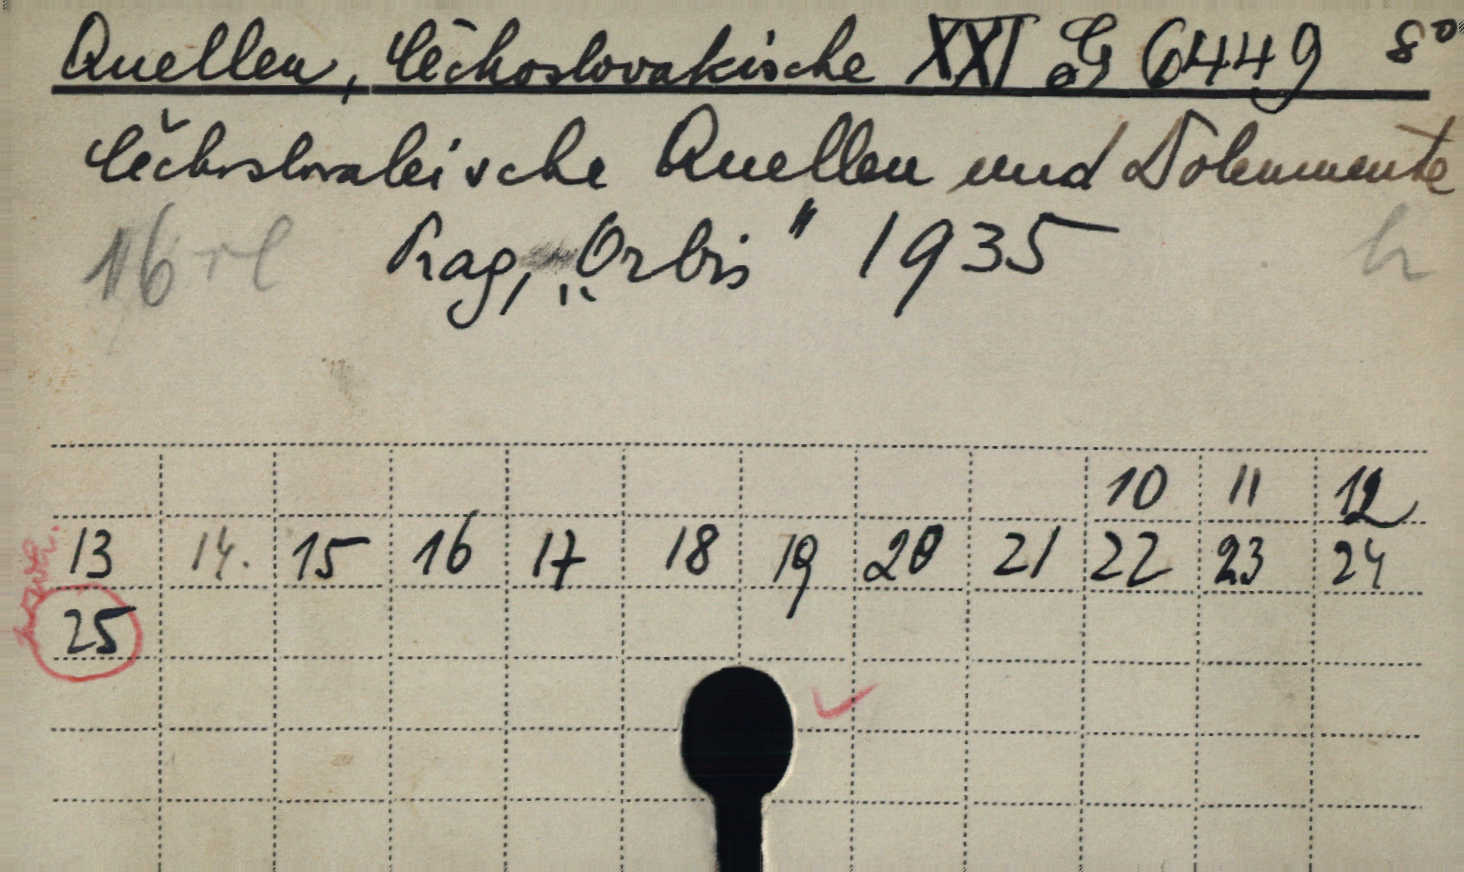 Quellen, Čechoslovakische XXI G 6449 8°
Čechoslovakische Quellen und Dokumente
16 Prag, „Orbis" 1935
10 11 12
13 14. 15 16 17 18 19 20 21 22 23 24
25